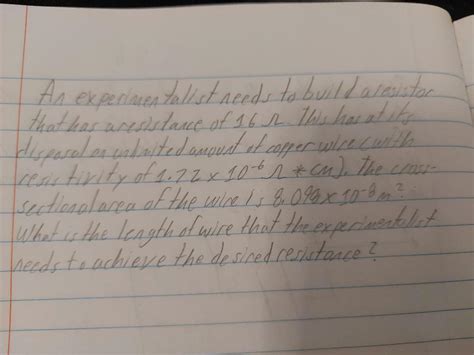 An experimentalist needs to build a resistor
that has a resistance of 16 Ω. This has at its
disposal an unlimited amount of copper wire (with
resistivity of 1.72 x 10⁻⁶ Ω * cm). The cross-
sectional area of the wire is 8.098 x 10⁻⁸ m².
What is the length of wire that the experimentalist
needs to achieve the desired resistance?